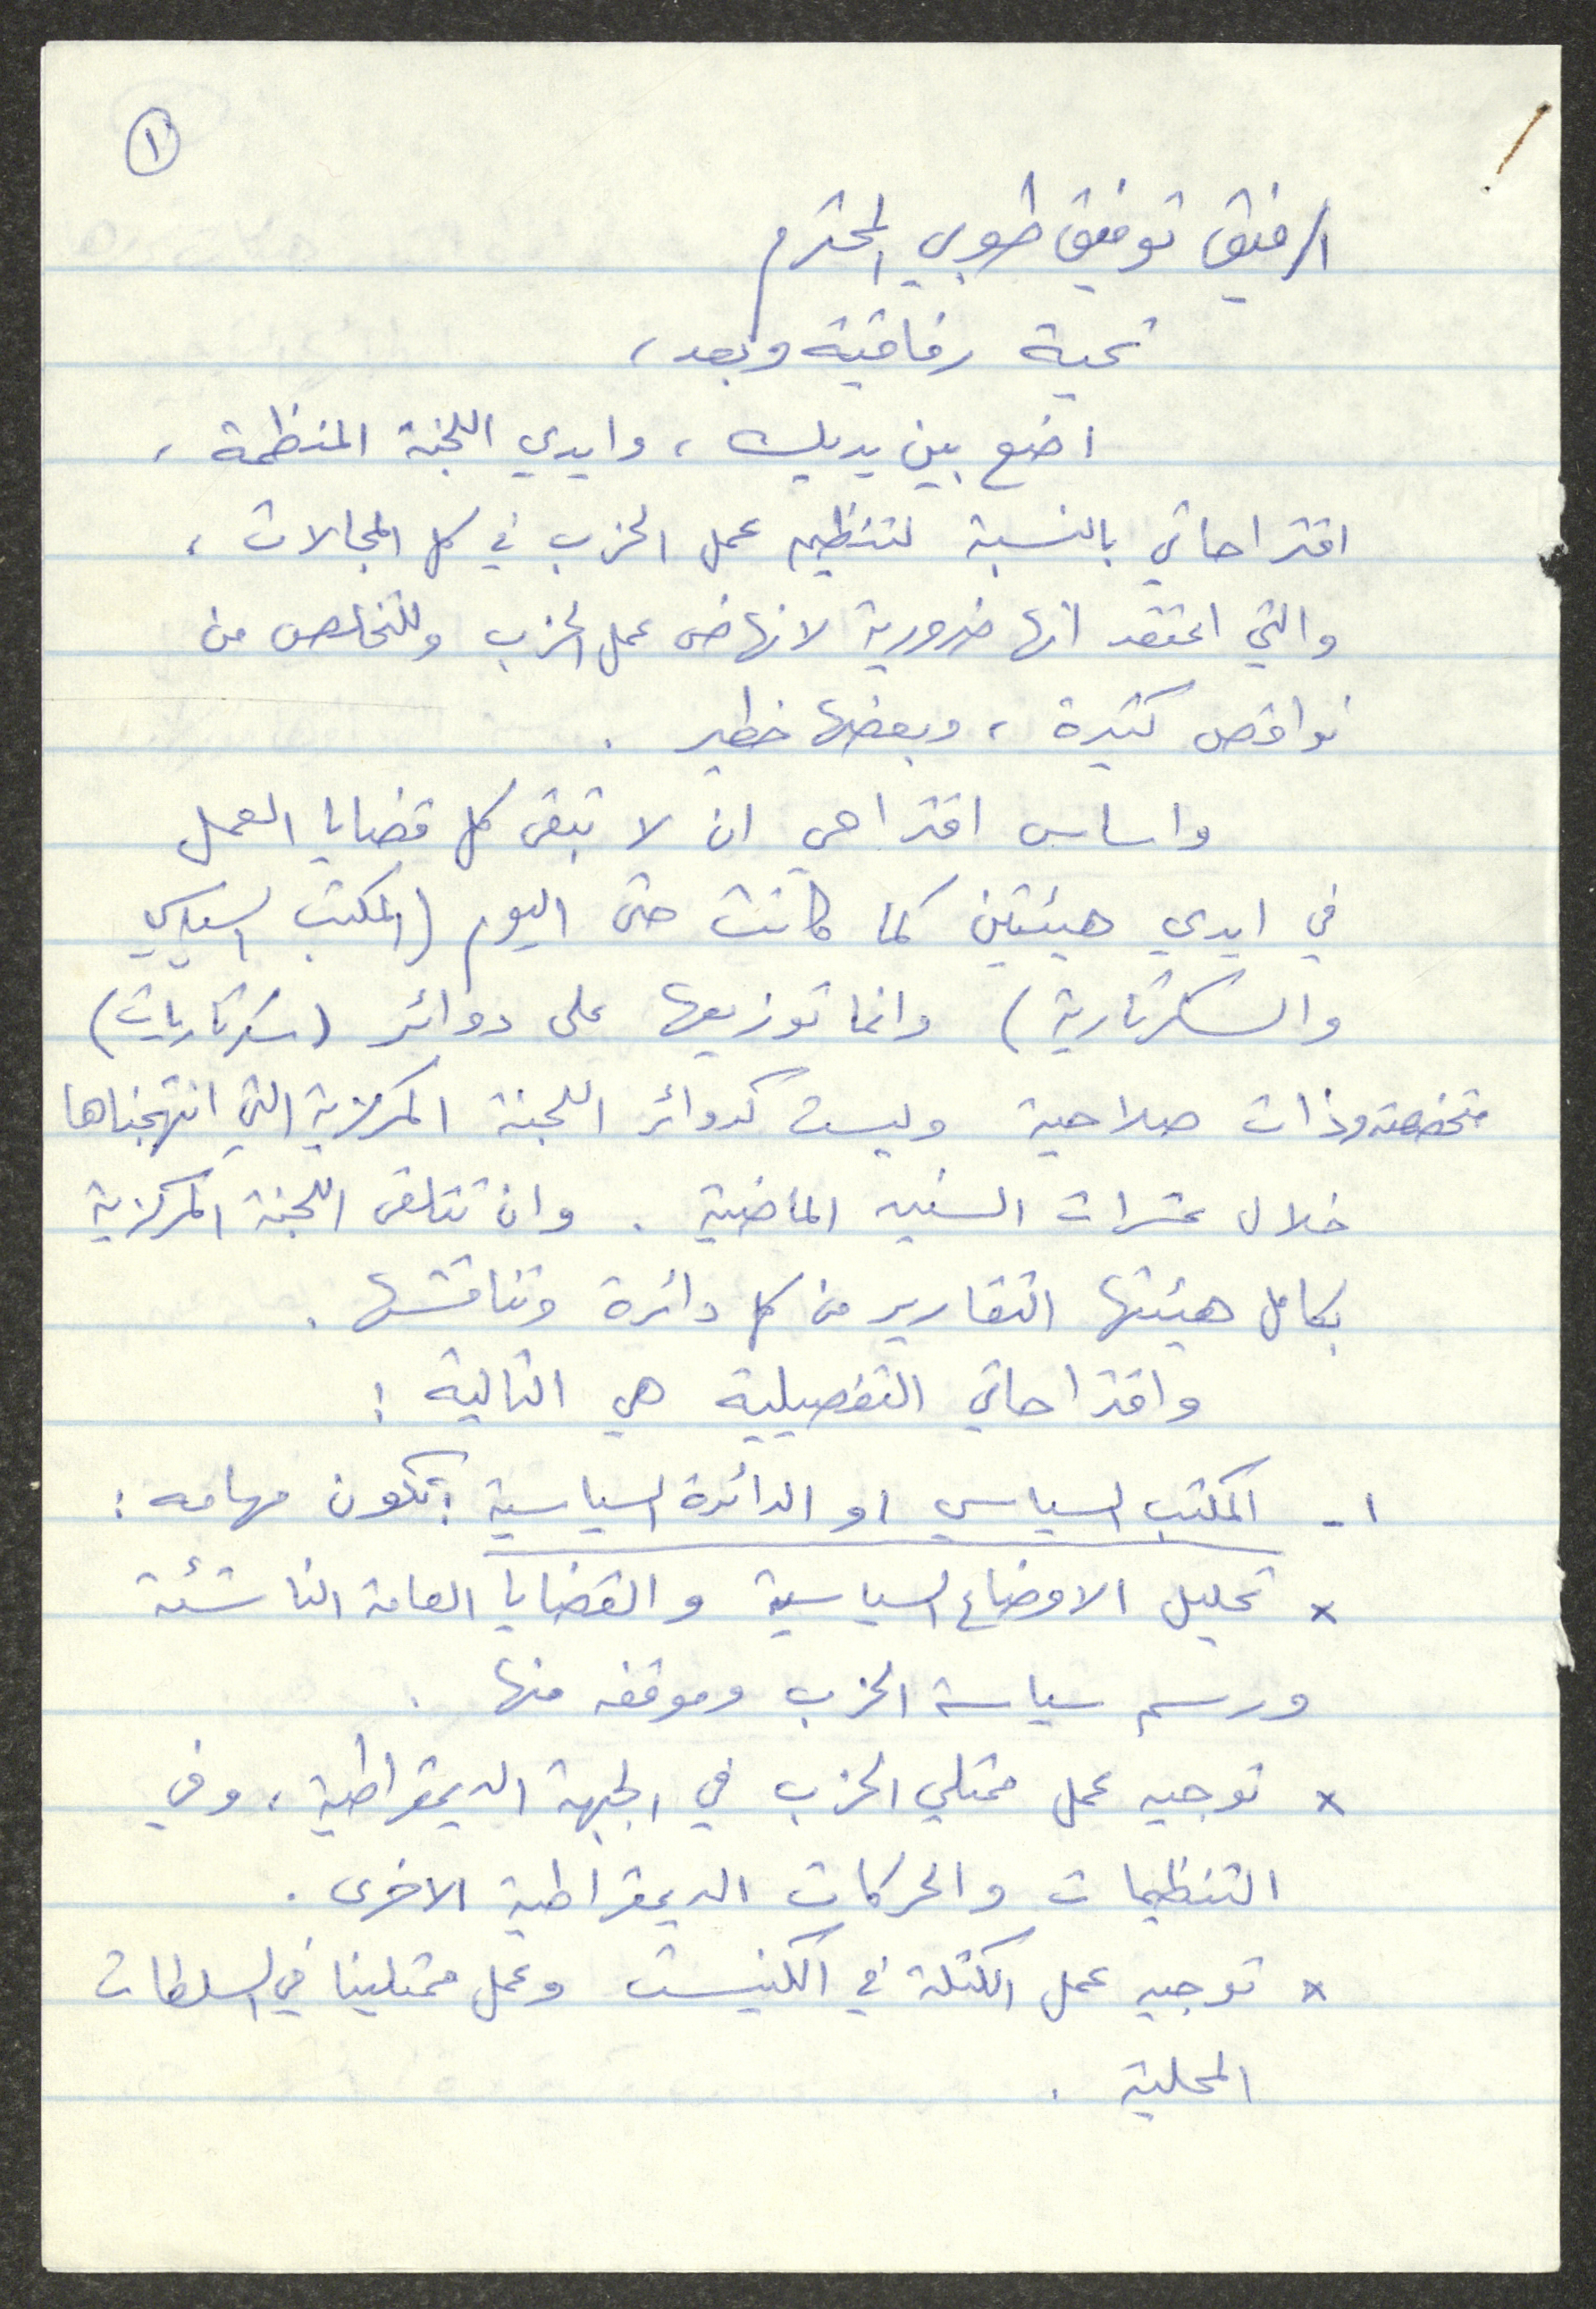 ١
الرفيق توفيق طوبي المحترم
تحية رفاقية وبعد،
اضع بين يديك، وايدي اللجنة المنظمة،
اقتراحاتي بالنسبة لتنظيم عمل الحزب في كل المجالات،
والتي اعتقد انها ضرورية لانهاض عمل الحزب وللتخلص من
نواقص كثيرة، وبعضها خطير.
واساس اقتراحي ان لا تبقى كل قضايا العمل
في ايدي هيئتين كما كانت حتى اليوم (المكتب السياسي
والسكرتارية) وانما توزيعها على دوائر (سكرتاريات)
متخصصة وذات صلاحية وليست كدوائر اللجنة المركزية التي انتهجناها
خلال عشرات السنين الماضية. وان تتلقى اللجنة المركزية
بكامل هيئتها التقارير من كل دائرة وتناقشها.
واقتراحاتي التفصيلية هي التالية:
١- المكتب السياسي او الدائرة السياسية: تكون مهامه:
x تحليل الاوضاع السياسية والقضايا العامة الناشئة
ورسم سياسة الحزب وموقفه منها.
x توجيه عمل ممثلي الحزب في الجبهة الديمقراطية، وفي
التنظيمات والحركات الديمقراطية الاخرى.
x توجيه عمل الكتلة في الكنيست وعمل ممثلينا في السلطات
المحلية.